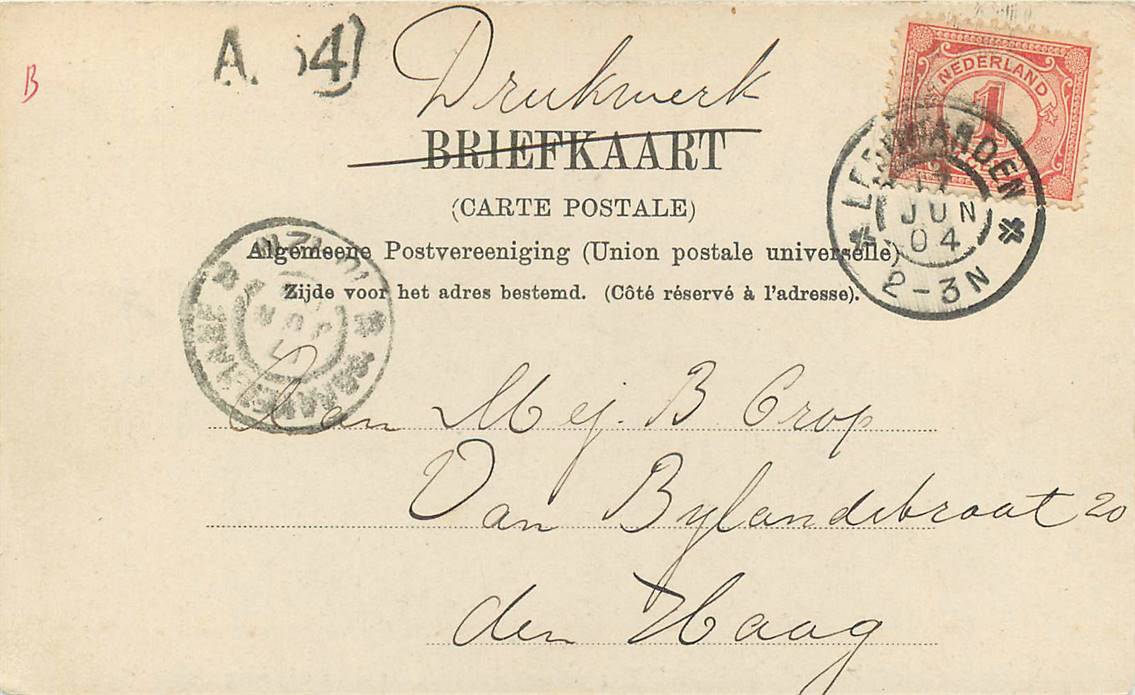 B
A. 4)
Drukwerk
BRIEFKAART
(CARTE POSTALE)
Algemeene Postvereeniging (Union postale universelle)
Zijde voor het adres bestemd. (Côté réservé à l'adresse).
NEDERLAND
1
LEEUWARDEN
17
JUN
04
2-3N
Aan Mej. B. Crop
Van Bylandtstraat 20
den Haag